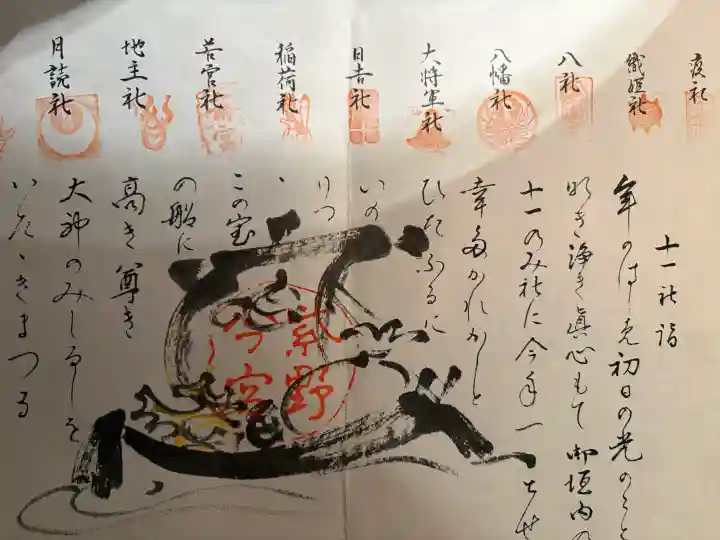 疫社
織姫社
八社
八幡社
大将軍社
日吉社
稲荷社
若宮社
地主社
月読社
十一社詣
年のはじめ初日の光のごと
なき浄き眞心もて御垣内の
十一のみ社に今年一とせ
幸多かれかしと
ひたぶるに
いの
りつ
ゝ
この宝
の船に
高き尊き
大神のみしるしを
いたゞきまつる
紫野
今宮